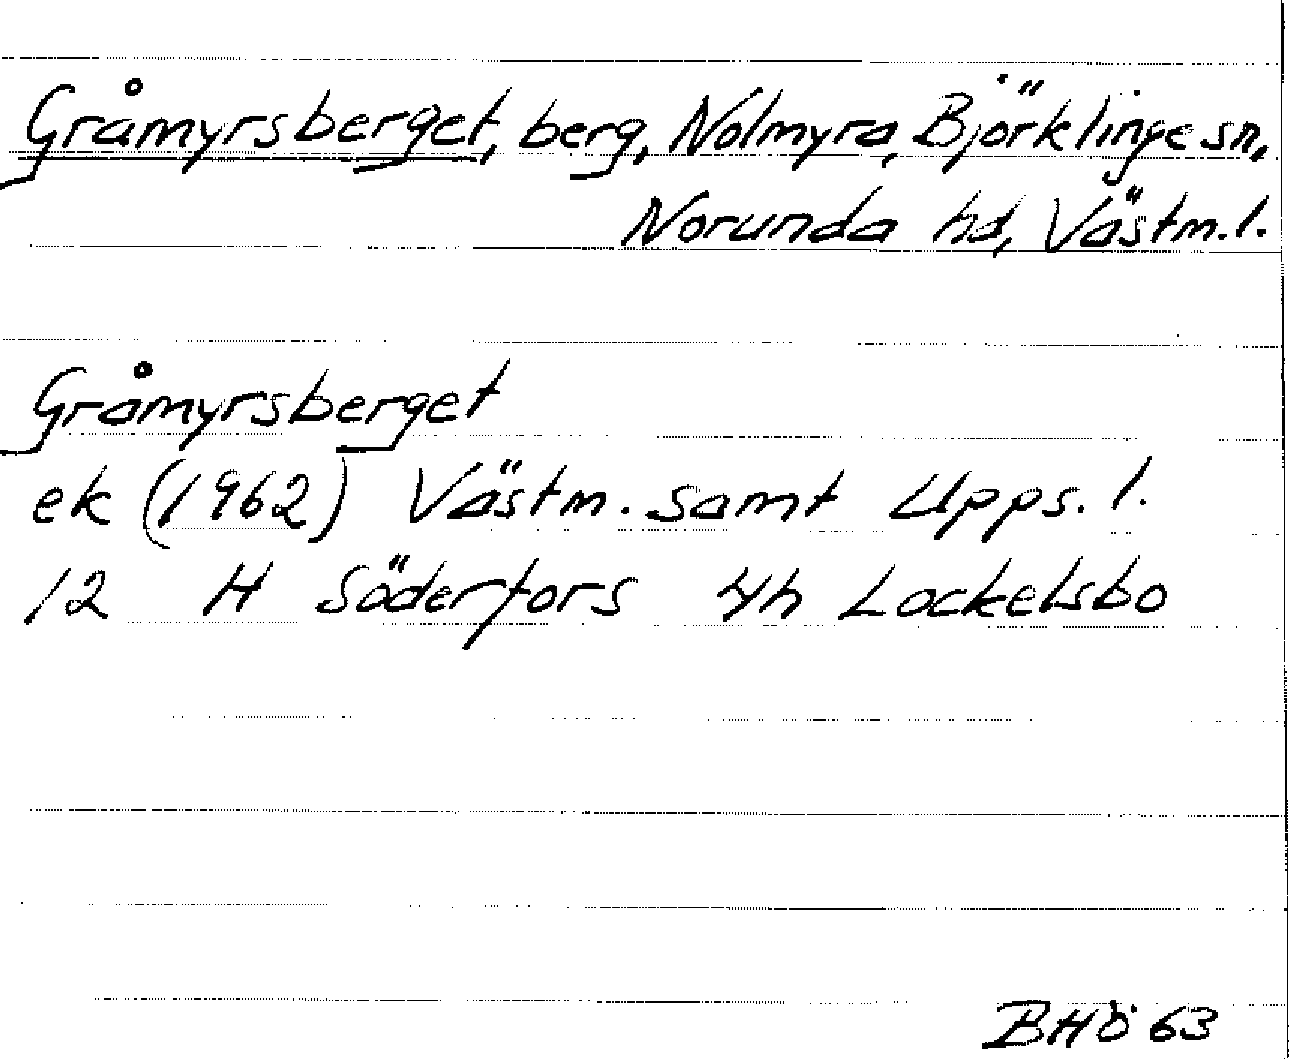 Gråmyrsberget, berg, Nolmyra, Björklinge sn,
Norunda hd, Västm. l.
Gråmyrsberget
ek (1962) Västm. samt Upps. l.
12 H Söderfors 4h Lockelsbo
BHÖ 63